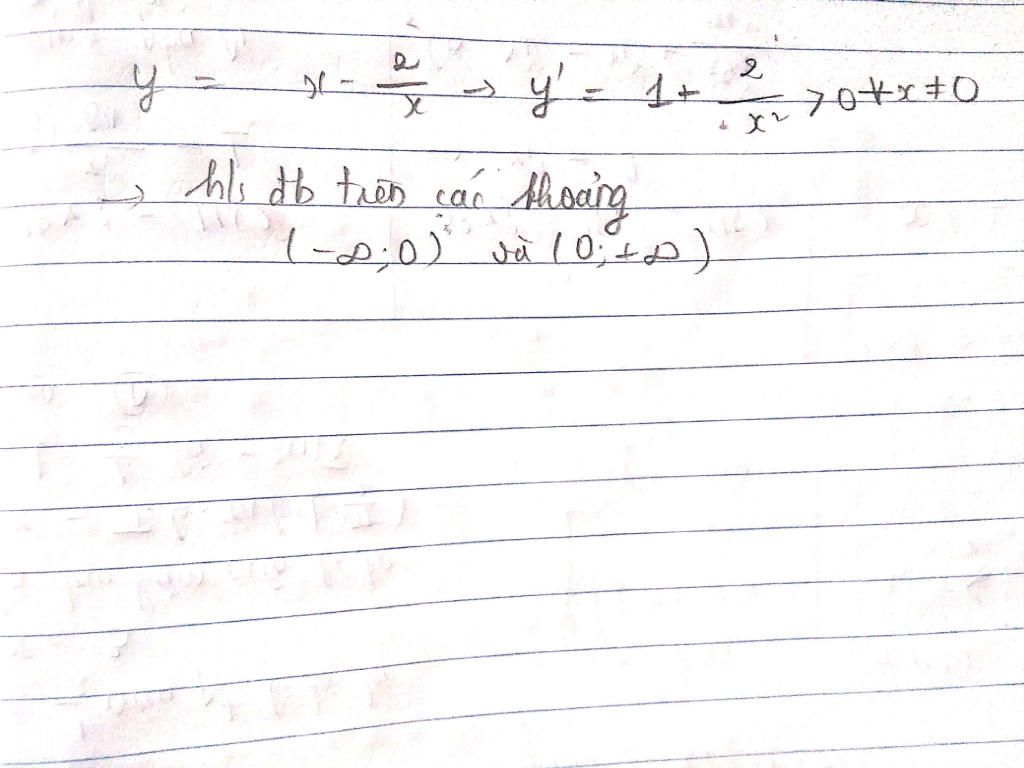 y = x - 2/x → y' = 1 + 2/x² > 0 ∀x ≠ 0
→ h/s đb trên các khoảng
(-∞; 0) và (0; +∞)